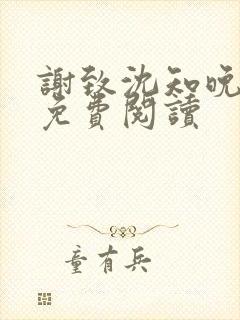 謝致沈知晚
免費閱讀
童有兵